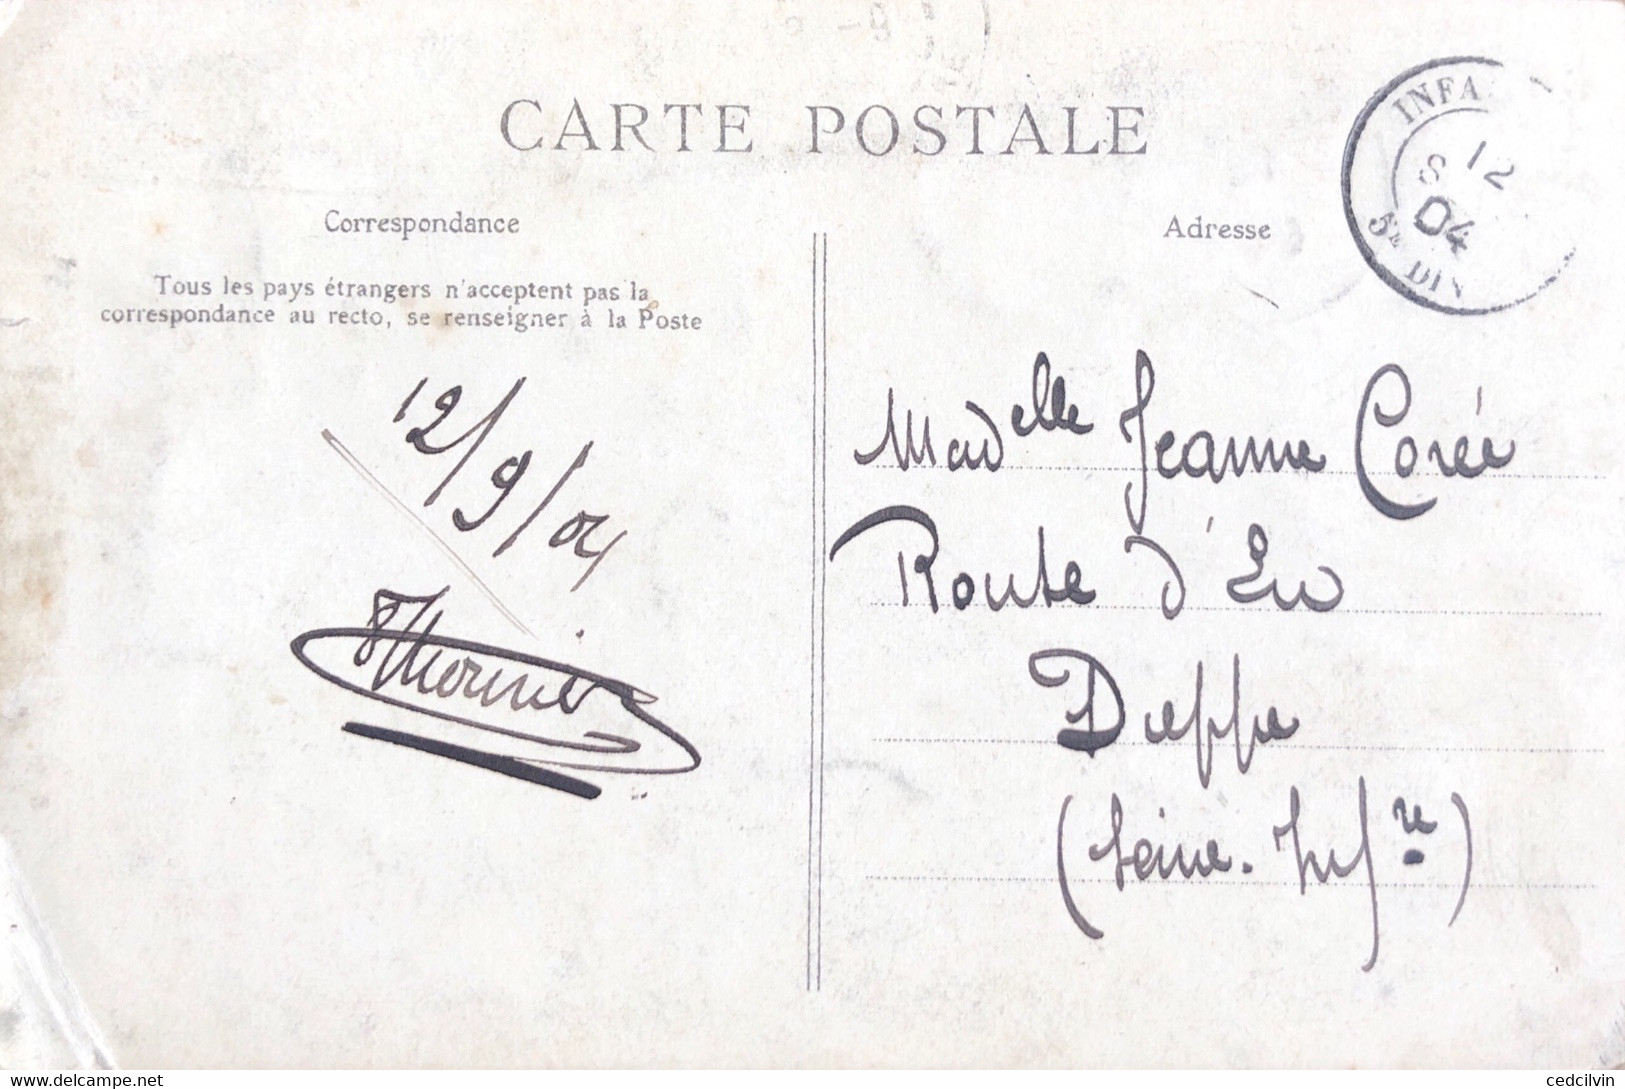 CARTE POSTALE
Correspondance
Tous les pays étrangers n'acceptent pas la
correspondance au recto, se renseigner à la Poste
12/9/04
Adresse
INFA
12
S
04
5e DIV
Madelle Jeanne Corée
Route d'Eu
Dieppe
(Seine-Infre)
delcampe.net
cedcilvin